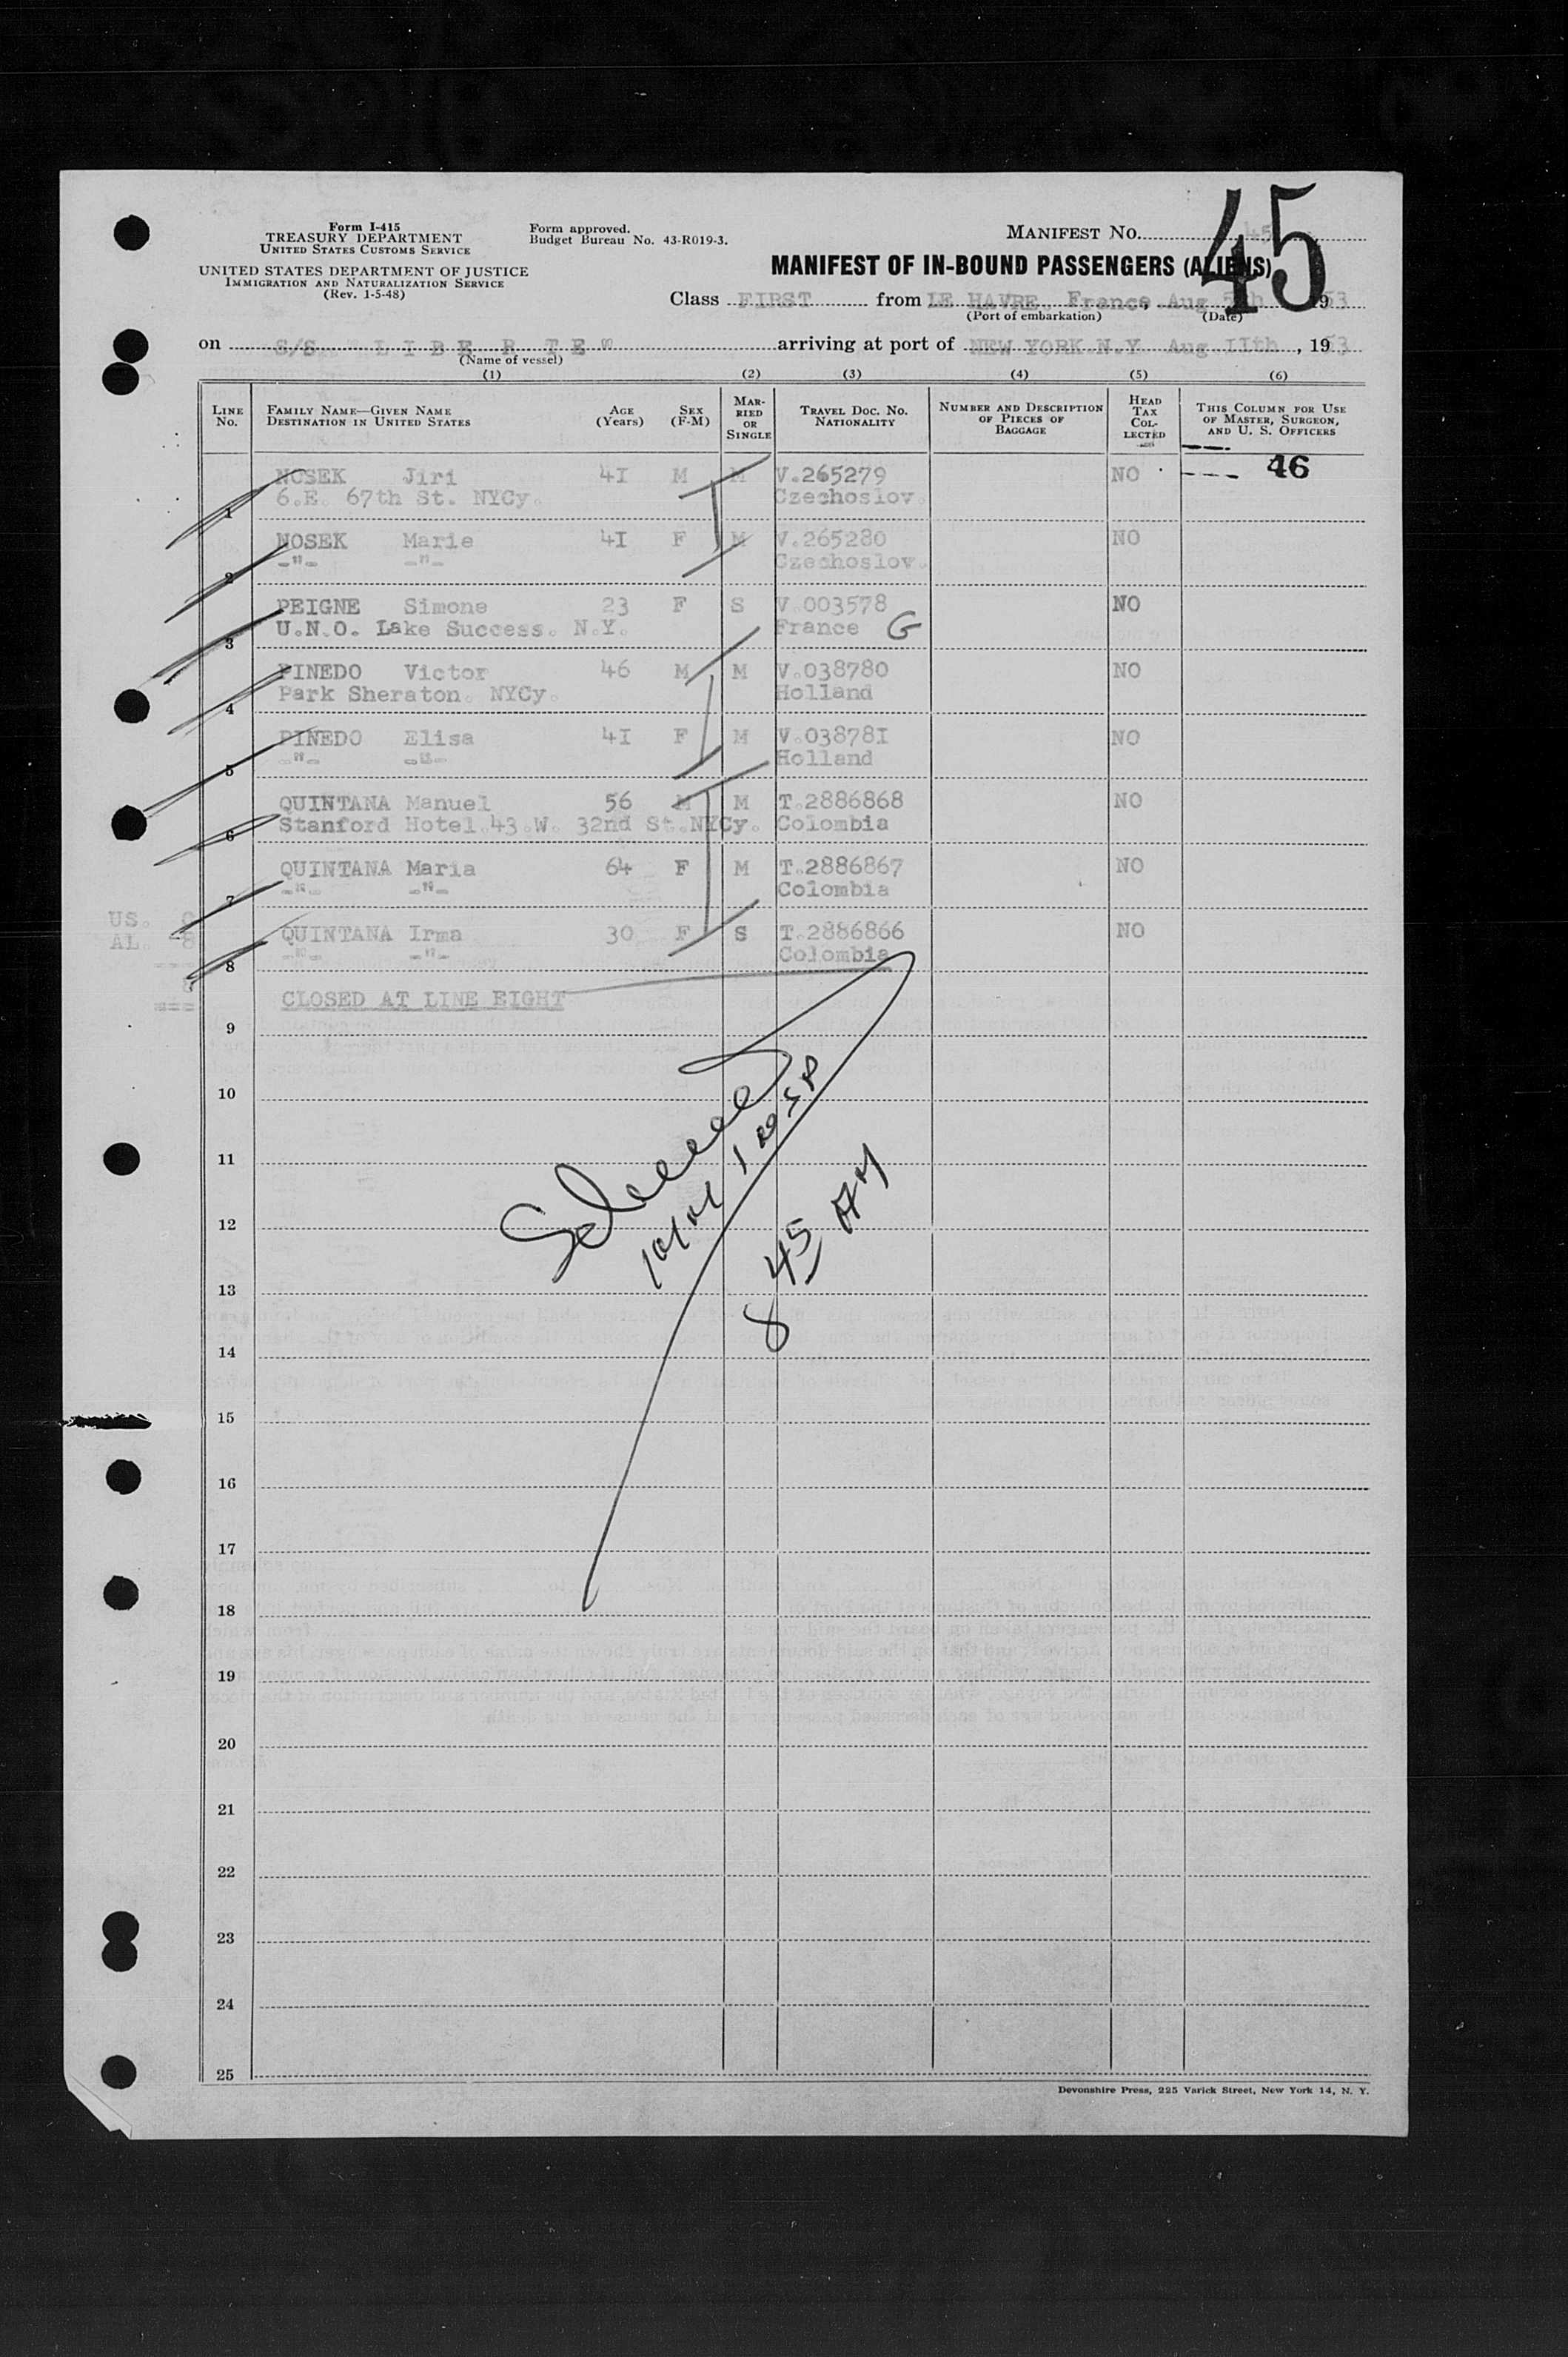 45
Form I-415
TREASURY DEPARTMENT
UNITED STATES CUSTOMS SERVICE
UNITED STATES DEPARTMENT OF JUSTICE
IMMIGRATION AND NATURALIZATION SERVICE
(Rev. 1-5-48)
Form approved.
Budget Bureau No. 43-R019-3.
MANIFEST NO. 45
MANIFEST OF IN-BOUND PASSENGERS (ALIENS)
Class FIRST from LE HAVRE, France, Aug 5th 1953
(Port of embarkation) (Date)
on S/S "LIBERTE" arriving at port of NEW YORK.N.Y Aug IIth, 1953
(Name of vessel)
(1) (2) (3) (4) (5) (6)
LINE NO. FAMILY NAME—GIVEN NAME DESTINATION IN UNITED STATES AGE (Years) SEX (F-M) MARRIED OR SINGLE TRAVEL DOC. NO. NATIONALITY NUMBER AND DESCRIPTION OF PIECES OF BAGGAGE HEAD TAX COLLECTED THIS COLUMN FOR USE OF MASTER, SURGEON, AND U. S. OFFICERS
NOSEK Jiri 4I M M V.265279 NO --- 46
1 6.E. 67th St. NYCy. Czechoslov.
NOSEK Marie 4I F M V.265280 NO
2 -"- -"- Czechoslov.
PEIGNE Simone 23 F S V.003578 NO
3 U.N.O. Lake Success. N.Y. France G
PINEDO Victor 46 M M V.038780 NO
4 Park Sheraton. NYCy. Holland
PINEDO Elisa 4I F M V.03878I NO
5 -"- -"- Holland
QUINTANA Manuel 56 M M T.2886868 NO
6 Stanford Hotel.43.W. 32nd St.NYCy. Colombia
QUINTANA Maria 64 F M T.2886867 NO
7 -"- -"- Colombia
US. 0
AL. 8
QUINTANA Irma 30 F S T.2886866 NO
8 -"- -"- Colombia
8
===
CLOSED AT LINE EIGHT
9
10
11
12
Insp
8 45 AM
13
14
15
16
17
18
19
20
21
22
23
24
25
Devonshire Press, 225 Varick Street, New York 14, N. Y.